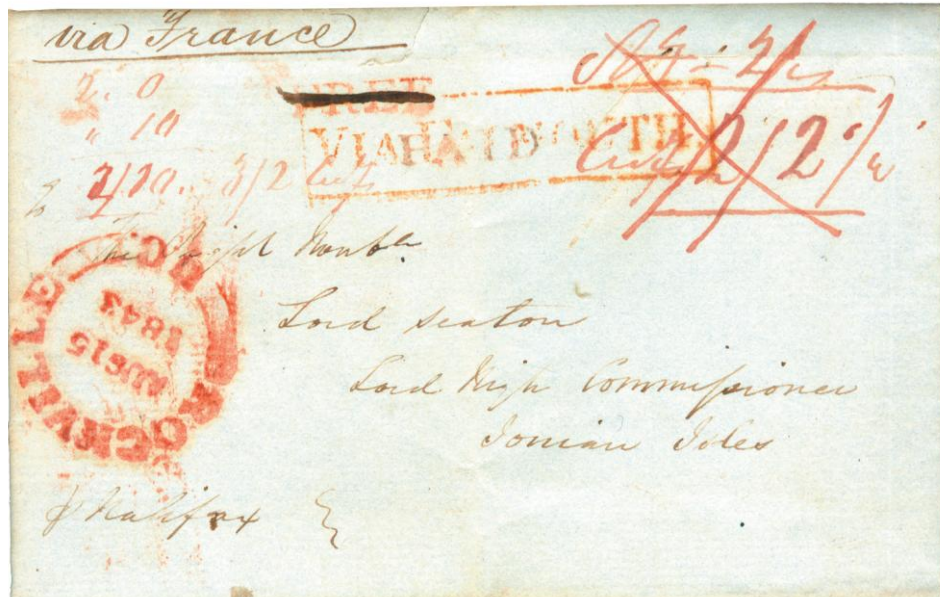 via France
2. 0
" 10
2/10. 3/2
FREE
VIA FALMOUTH
Stg - 2/
Cuy 2/2
To
The Right Honble.
Lord Seaton
Lord High Commissioner
Ionian Isles
BROCKVILLE U.C
AUG 15
1843
p Halifax